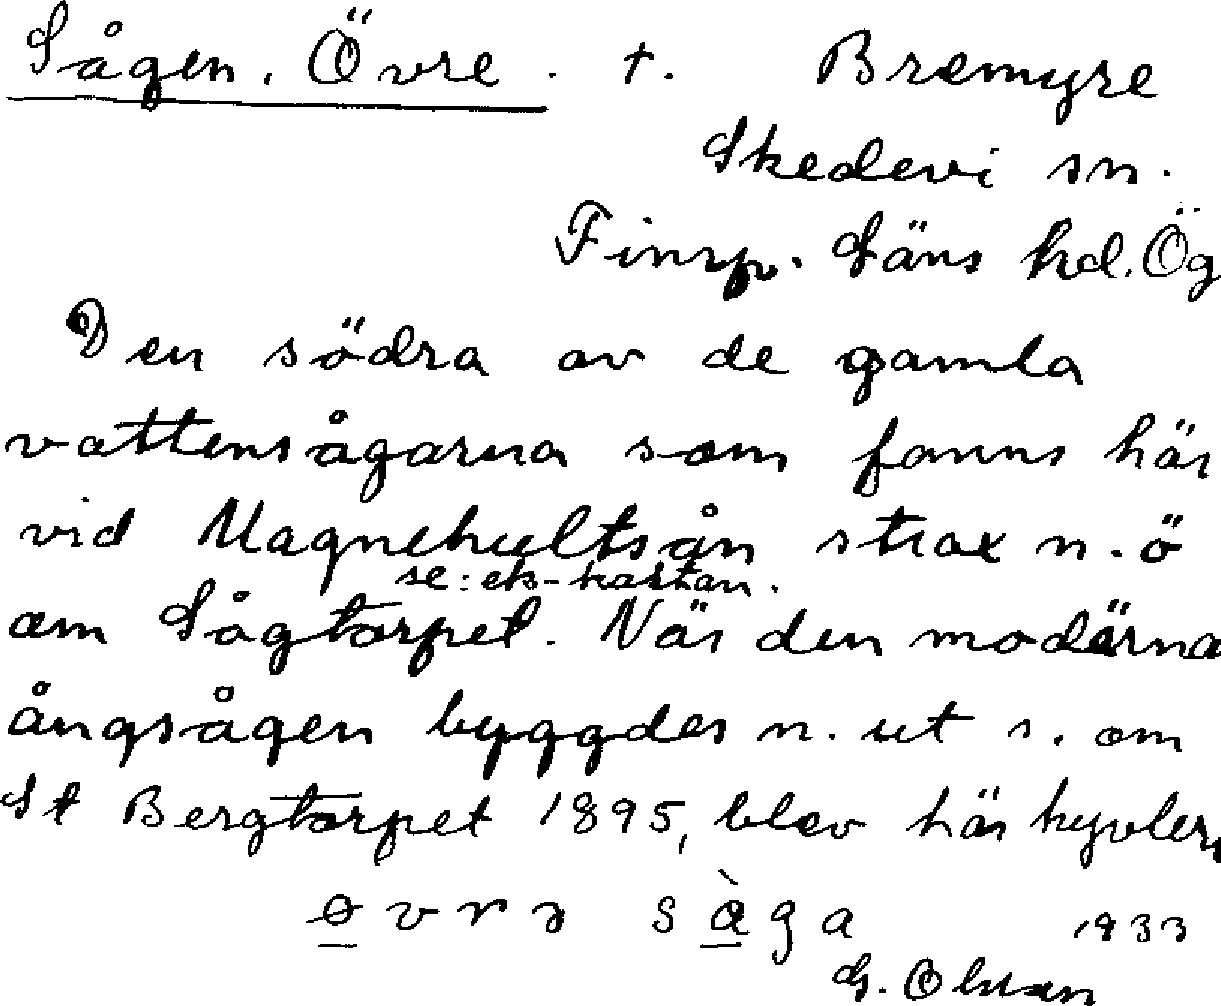 Sågen, Övre. †. Bremyre
Skedevi sn.
Finsp. Läns hd. Ög
Den södra av de gamla
vattensågarna som fanns här
vid Magnehultsån strax n.ö
se: ek-kartan.
om Sågtorpet. När den modärna
ångsågen byggdes n. ut s. om
St Bergtorpet 1895, blev här hyvleri
øvrə sàga 1933
G. Olsson